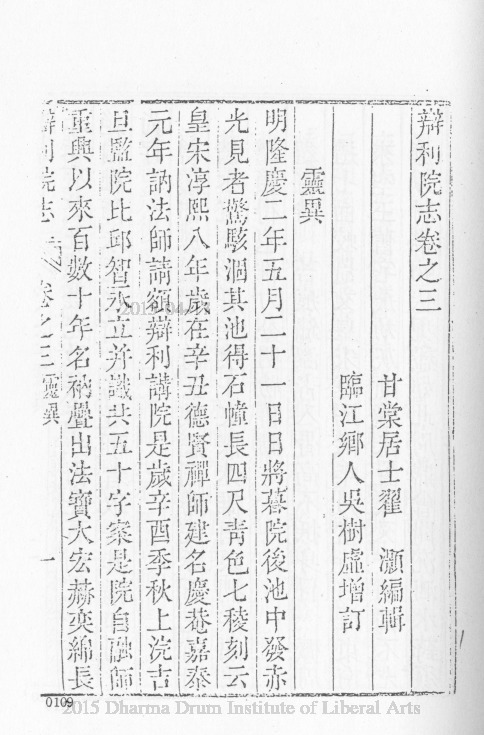 辯利院志卷之三
甘棠居士翟　灝編輯
臨江鄉人吳樹虛增訂
靈異
明隆慶二年五月二十一日日將暮院後池中發赤
光見者驚駭涸其池得石幢長四尺靑色七稜刻云
皇宋淳熙八年歲在辛丑德賢禪師建名慶菴嘉泰
元年訥法師請額辯利講院是歲辛酉季秋上浣吉
旦監院比邱智永立幷識共五十字案是院自融師
重興以來百數十年名衲疊出法寶大宏赫奕綿長
辯利院志　卷之三靈異　一
0109
2015 Dharma Drum Institute of Liberal Arts